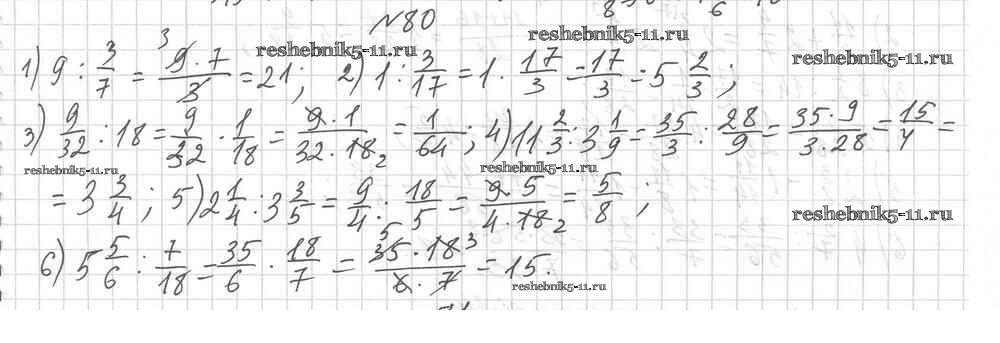 №80
reshebnik5-11.ru reshebnik5-11.ru reshebnik5-11.ru
1) 9 : 3/7 = 9·7/3 = 21; 2) 1 : 3/17 = 1 · 17/3 = 17/3 = 5 2/3;
3) 9/32 : 18 = 9/32 · 1/18 = 9·1/32·18 = 1/64; 4) 11 2/3 : 3 1/9 = 35/3 : 28/9 = 35·9/3·28 = 15/4 =
reshebnik5-11.ru reshebnik5-11.ru
= 3 3/4; 5) 2 1/4 : 3 3/5 = 9/4 : 18/5 = 9·5/4·18 = 5/8;
reshebnik5-11.ru
6) 5 5/6 : 7/18 = 35/6 · 18/7 = 35·18/6·7 = 15.
reshebnik5-11.ru